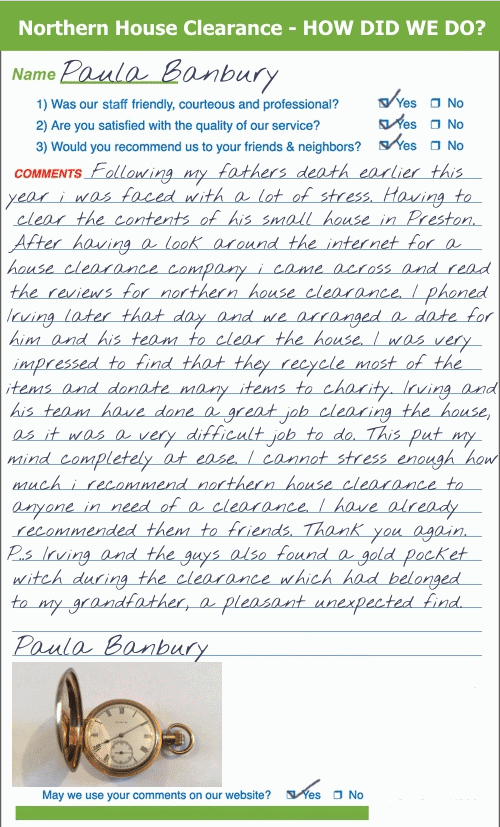 Northern House Clearance - HOW DID WE DO?
Name Paula Banbury
1) Was our staff friendly, courteous and professional? Yes No
2) Are you satisfied with the quality of our service? Yes No
3) Would you recommend us to your friends & neighbors? Yes No
COMMENTS Following my fathers death earlier this
year i was faced with a lot of stress. Having to
clear the contents of his small house in Preston.
After having a look around the internet for a
house clearance company i came across and read
the reviews for northern house clearance. I phoned
Irving later that day and we arranged a date for
him and his team to clear the house. I was very
impressed to find that they recycle most of the
items and donate many items to charity. Irving and
his team have done a great job clearing the house,
as it was a very difficult job to do. This put my
mind completely at ease. I cannot stress enough how
much i recommend northern house clearance to
anyone in need of a clearance. I have already
recommended them to friends. Thank you again.
P..s Irving and the guys also found a gold pocket
witch during the clearance which had belonged
to my grandfather, a pleasant unexpected find.
Paula Banbury
May we use your comments on our website? Yes No